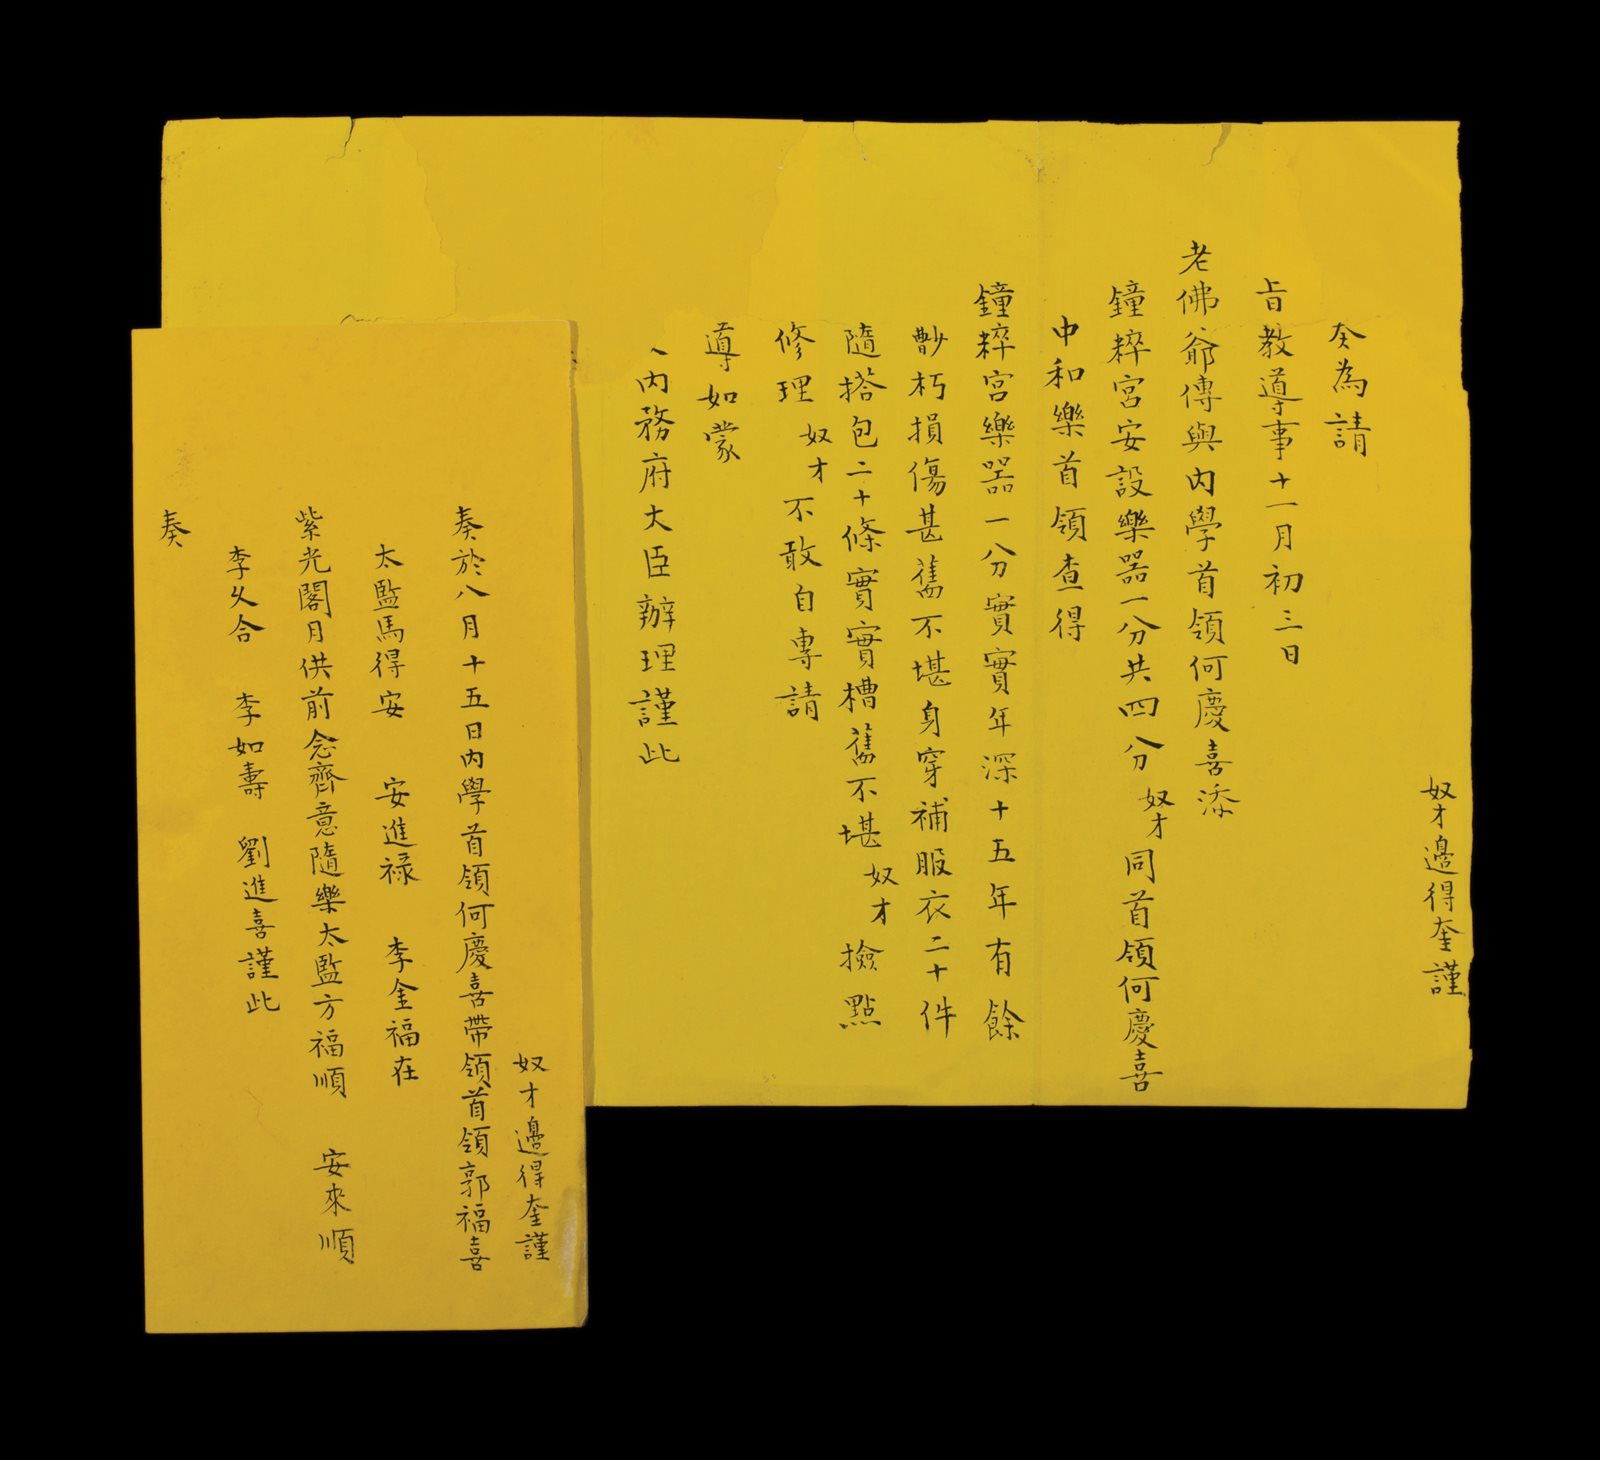 奴才邊得奎謹
奏為請
旨教導事十一月初三日
老佛爺傳與內學首領何慶喜添
鐘粹宮安設樂器一分共四分奴才同首領何慶喜
中和樂首領查得
鐘粹宮樂器一分實實年深十五年有餘
朽損傷甚舊不堪身穿補服衣二十件
隨搭包二十條實實糟舊不堪奴才撿點
修理奴才不敢自專請
導如蒙
內務府大臣辦理謹此
奴才邊得奎謹
奏於八月十五日內學首領何慶喜帶領首領郭福喜
太監馬得安 安進禄 李金福在
紫光閣月供前念齊意隨樂太監方福順 安來順
李乆合 李如壽 劉進喜謹此
奏